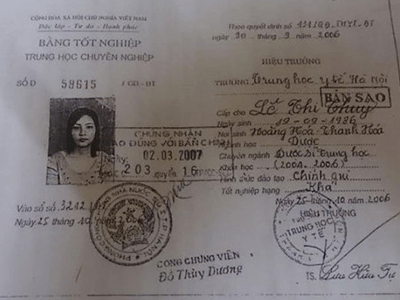 CỘNG HOÀ XÃ HỘI CHỦ NGHĨA VIỆT NAM
Độc lập - Tự do - Hạnh phúc
BẰNG TỐT NGHIỆP
TRUNG HỌC CHUYÊN NGHIỆP
SỐ D 58615 / GD-ĐT
CHỨNG NHẬN
SAO ĐÚNG VỚI BẢN CHÍNH
Ngày 02.03.2007
203 quyển 16
Vào sổ số 3212
Ngày 25 tháng 10 năm
CÔNG CHỨNG VIÊN
Đỗ Thùy Dương
Theo quyết định số
ngày 20 tháng 9 / 2006
HIỆU TRƯỞNG
TRƯỜNG Trung học y tế Hà Nội
BẢN SAO
Cấp cho Lê Thị Thuỷ
Ngày sinh 19-09-1986
Nơi sinh Hoằng Hoá - Thanh Hoá
Ngành Dược
Chuyên ngành Dược sĩ trung học
Khoá (2004-2006)
Hình thức đào tạo Chính quy
Tốt nghiệp hạng Khá
Ngày 25 tháng 10 / 2006
HIỆU TRƯỞNG
TRUNG HỌC
Y TẾ
TS. Lưu Hữu Tự